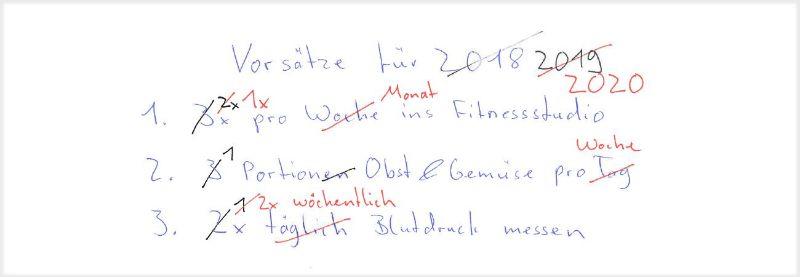 Vorsätze für 2018 2019
2020
1. 3x 2x 1x pro Woche Monat ins Fitnessstudio
2. 3 1 Portionen Obst & Gemüse pro Tag Woche
3. 2x 1 2x täglich wöchentlich Blutdruck messen